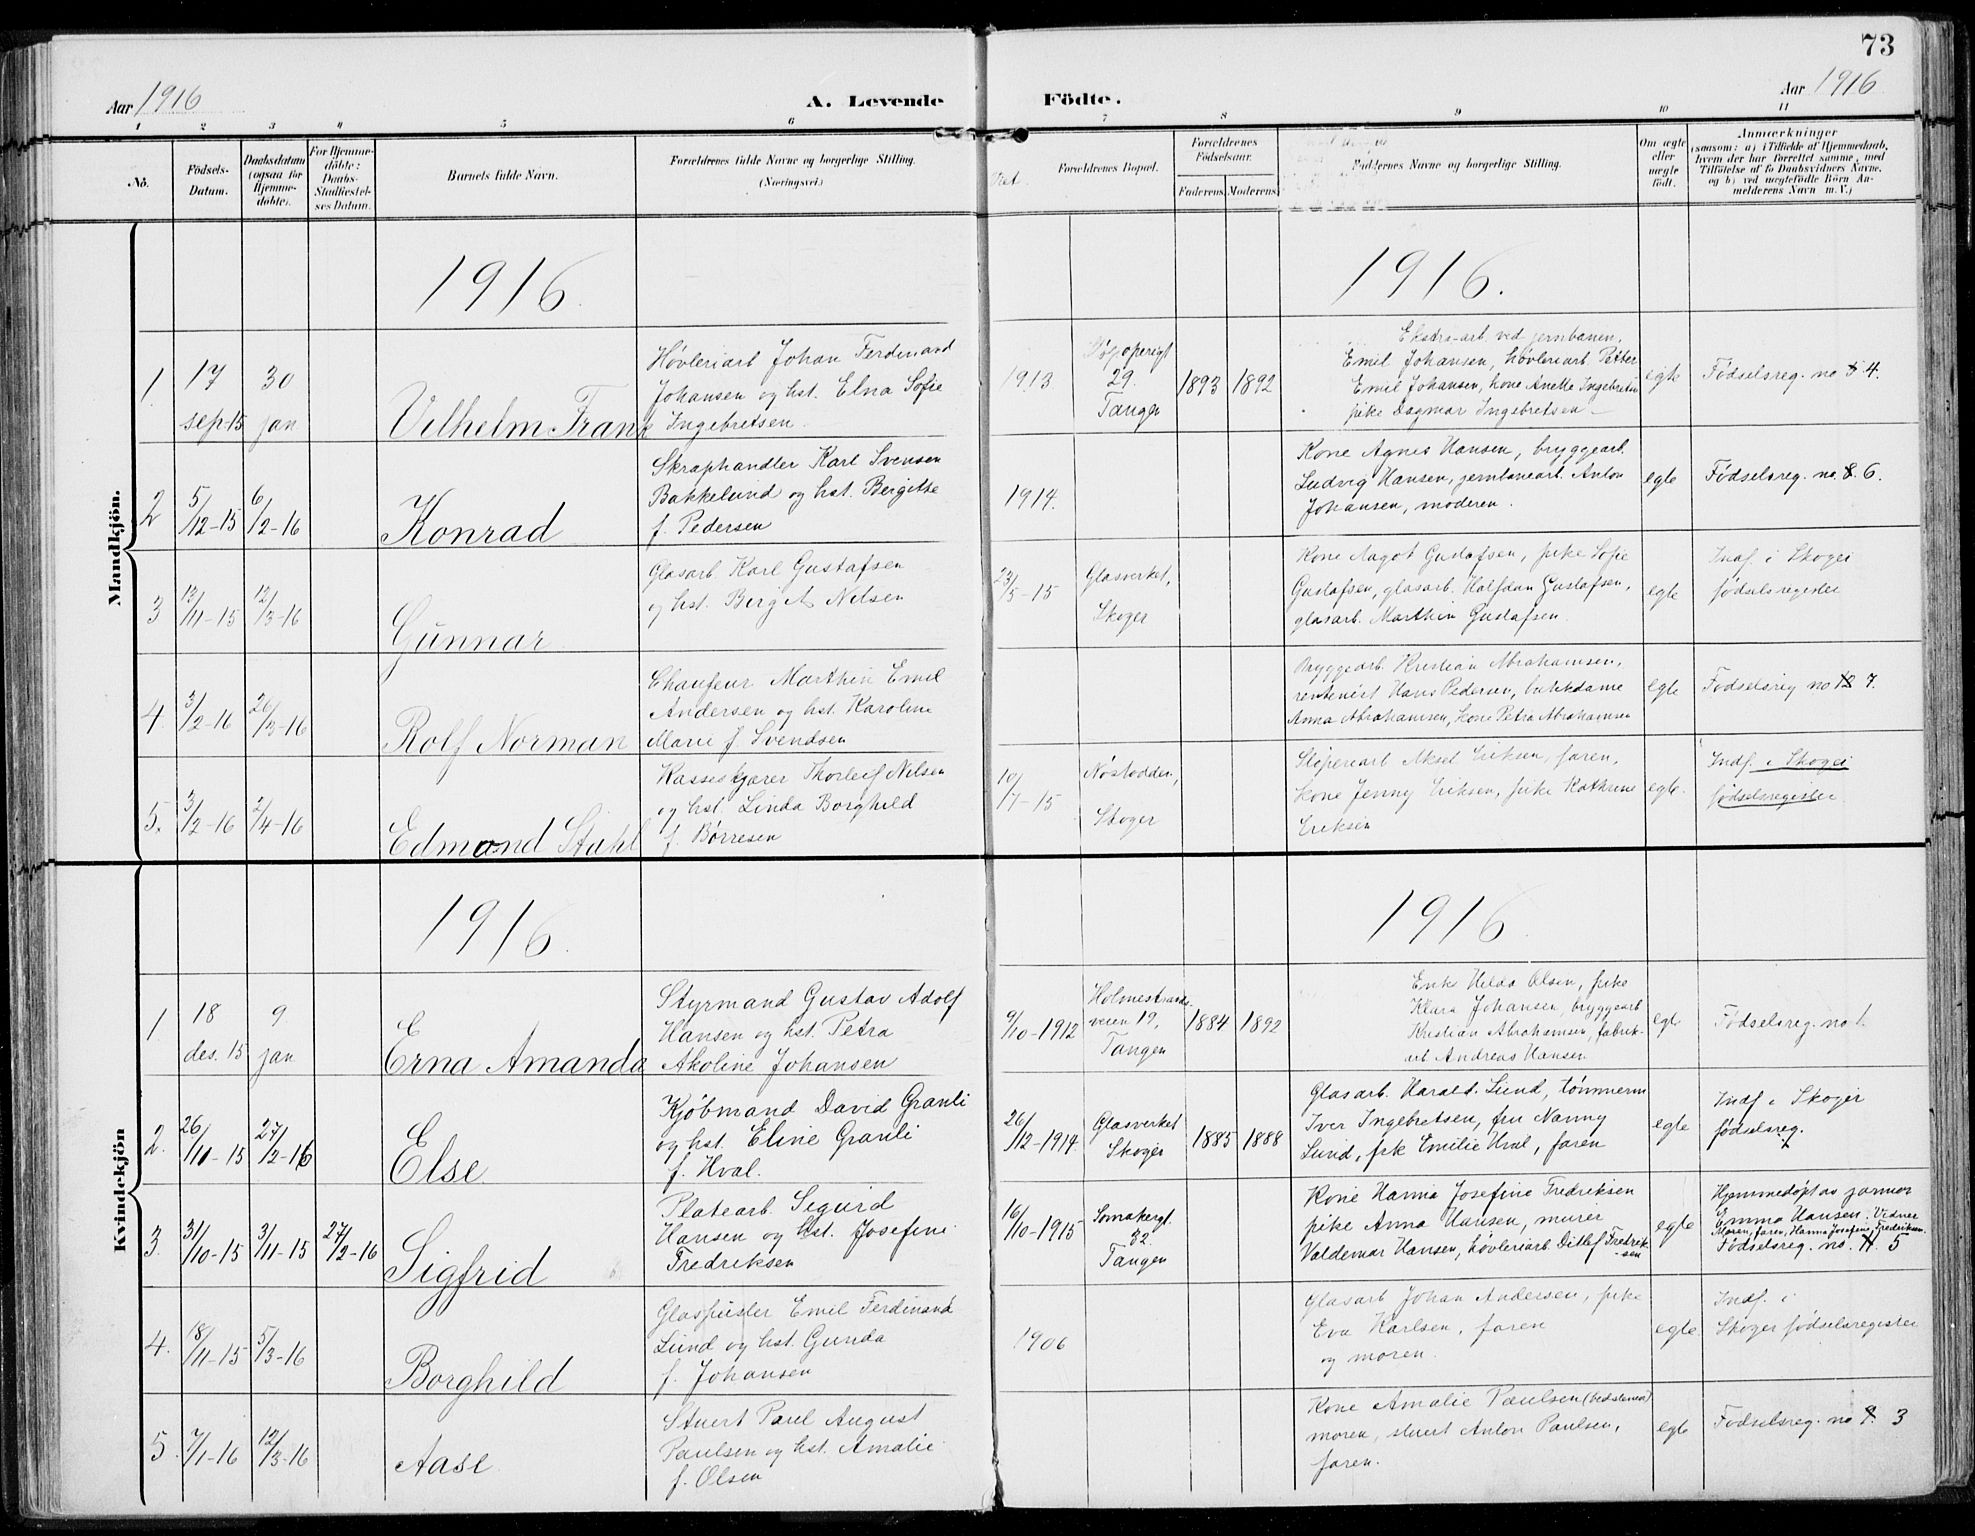 73
Aar 1916
A. Levende
Födte.
Aar 1916
1 2 3 4 5 6 7 8 9 10 11
No.
Födsels-
Datum.
Daabsdatum
(ogsaa for
Hjemme-
döbte).
For Hjemme-
döbte:
Daabs-
Stadfæstel-
ses Datum.
Barnets fulde Navn.
Forældrenes fulde Navne og borgerlige Stilling.
(Næringsvei.)
Viet
Forældrenes Bopæl.
Forældrenes
Födselsaar.
Faderens. Moderens.
Faddernes Navne og borgerlige Stilling.
Om ægte
eller
uægte
født.
Anmærkninger
(saasom: a) i Tilfælde af Hjemmedaab,
hvem der har forrettet samme, med
Tilföielse af to Daabsvidners Navne,
og b) ved uægtefödte Börn An-
melderens Navn m. V.)
Mandkjön.
1916.
1916.
1.
17
sep-15
30
jan
Vilhelm Frank
Høvleriarb Johan Ferdinand
Johansen og hst. Elna Sofie
Ingebretsen.
1913
29.
Tangen
1893
1892
Ekstra-arb. ved jernbanen.
Emil Johansen, høvleriarb. Petter
Emil Johansen, kone Anette Ingebretsen
pike Dagmar Ingebretsen
egte
Fødselsreg. no 4.
2
5/12-15
6/2-16
Konrad
Skraphandler Karl Svensen
Bakkelund og hst. Bergitte
f. Pedersen
1914.
Kone Agnes Hansen, bryggearb.
Ludvig Hansen, jernbanearb. Anton
Johansen, moderen.
egte
Fødselsreg. no. 8. 6.
3
13/11-15
12/3-16
Gunnar
Glasarb. Karl Gustafsen
og hst. Bergit Nilsen
23/5-15
Glasverket,
Skoger
Kone Aagot Gustafsen, pike Sofie
Gustafsen, glasarb. Halfdan Gustafsen,
glasarb. Marthin Gustafsen.
egte
Indf. i Skoger
fødselsregister
4.
3/2-16
26/3-16
Rolf Norman
Chaufeur Marthin Emil
Andersen og hst. Karoline
Marie f. Svendsen
Bryggearb Kristian Abrahamsen,
rentenist Hans Pedersen, butikdame
Anna Abrahamsen, kone Petra Abrahamsen
egte
Fødselsreg no 12 7.
5.
3/2-16
2/4-16
Edmond Stahl
Kasseskjærer Thorleif Nilsen
og hst. Linda Borghild
f. Børresen
10/7-15
Nøstodden,
Skoger
Sliperiarb Aksel Eriksen, faren,
kone Jenny Eriksen, pike Kathrine
Eriksen
egte.
Indf. i Skoger
fødselsregister
Kvindekjön
1916.
1916
1.
18
des. 15
9
jan
Erna Amanda
Styrmand Gustav Adolf
Hansen og hst. Petra
Akoline Johansen
9/10-1912
Holmestrands-
veien 19,
Tangen
1884
1892
Enke Hilda Olsen, pike
Klara Johansen, bryggearb
Kristian Abrahamsen, fabrik-
arb Andreas Hansen
egte
Fødselsreg. no 1.
2.
26/10-15
27/2-16
Else
Kjøbmand David Granli
og hst. Eline Granli
f. Hval.
26/12-1914.
Glasverket
Skoger
1885
1888
Glasarb. Harald Lund, tømmerm
Iver Ingebretsen, fru Nanny
Lund, frk Emilie Hval, faren
egte
Indf i Skoger
fødselsreg.
3.
31/10-15
3/11-15
27/2-16
Sigfrid
Platearb. Sigurd
Hansen og hst. Josefine
Fredriksen
16/10-1915
32.
Tangen
Kone Hanna Josefine Fredriksen
pike Anna Hansen, murer
Valdemar Hansen, høvleriarb Ditlef Fredrik-
sen
egte
Hjemmedøpt av jormor
Emma Hansen. Vidner
Moren, faren, Hanna Josefine Fredriksen.
Fødselsreg. no. 11. 5
4.
18/11-15
5/3-16
Borghild
Glaspuster Emil Ferdinand
Lund og hst. Gunda
f. Johansen
1906
Glasarb Johan Andersen, pike
Eva Karlsen, faren
og moren.
egte
Indf. i
Skoger fødselsregister
5.
7/1-16
12/3-16
Aase
Stuert Paul August
Paulsen og hst. Amalie
f. Olsen
Kone Amalie Paulsen (bedstemor)
moren, stuert Anton Paulsen,
faren.
egte
Fødselsreg. no 9. 3